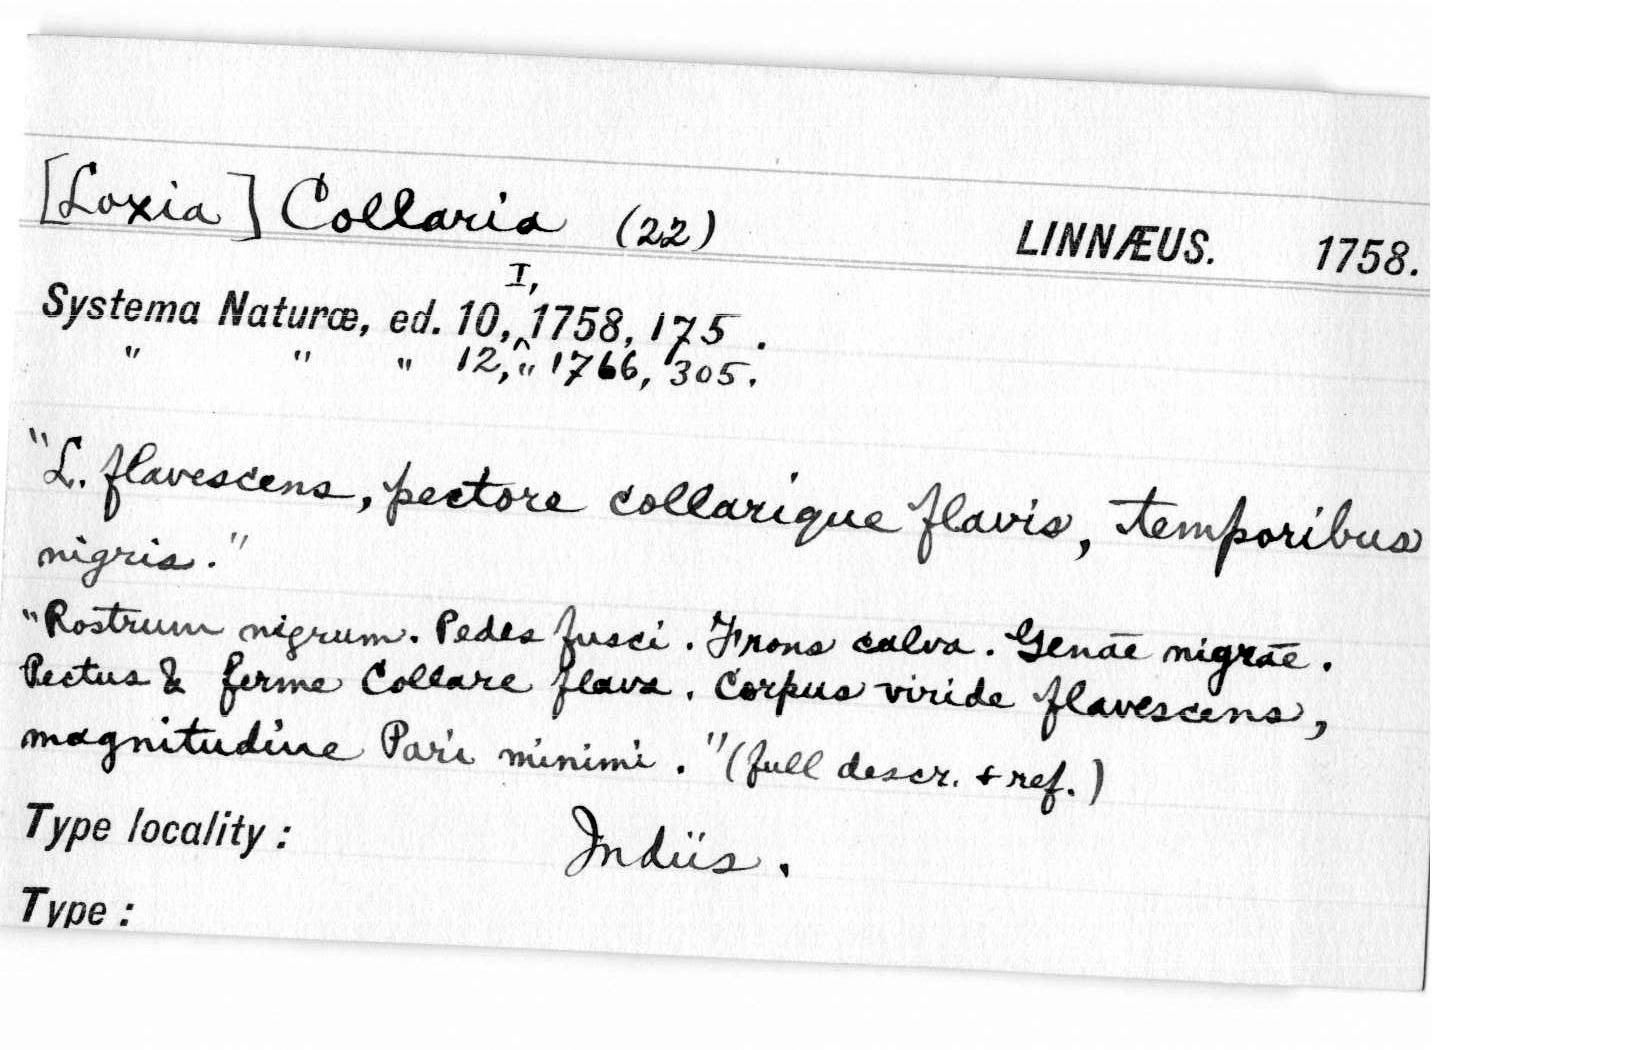 [Loxia] Collaria (22) LINNÆUS. 1758.
Systema Naturæ, ed. 10, ^ I, 1758, 175.
" " " 12, " 1766, 305.
"L. flavescens, pectore collarique flavis, temporibus
nigris."
"Rostrum nigrum. Pedes fusci. Frons calva. Genae nigrae.
Pectus & ferme Collare flava. Corpus viride flavescens,
magnitudine Pari minimi." (full descr. & ref.)
Type locality: Indiis.
Type: